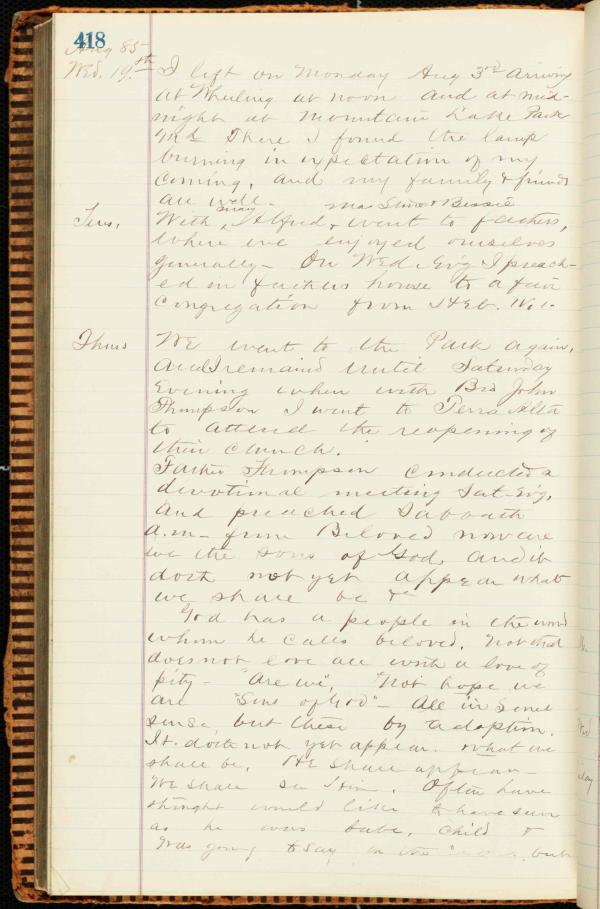 418
Aug 85
Wed. 19th I left on Monday Aug 3rd arriving
at Wheeling at noon and at mid-
night at Mountain Lake Park
Md There I found the lamp
burning in expectation of my
coming, and my family & friends
all well. Ma & Bessie
Tues, With May, Alfred & went to fathers,
where we enjoyed ourselves
generally - On Wed. Evg I preach-
ed in fathers house to a fair
congregation from Heb.
Thurs We went to the Park again,
and remained until Saturday
Evening when with Bro John
Thompson I went to Terra Alta
to attend the reopening of
their church.
Father Thompson conducted a
devotional meeting Sat. Evg,
and preached Sabbath
a.m. from Beloved now are
we the sons of God, and it
doth not yet appear what
we shall be &c
God has a people in the world
whom he calls beloved, not that
does not love all with a love of
pity - "Are we", "Not hope we
are "Sons of God" - All in some
sense, but these by adoption.
It doth not yet appear what we
shall be. He shall appear -
We shall see Him. Often have
thought would like to have seen
as he was babe, child &
was going to say in the but